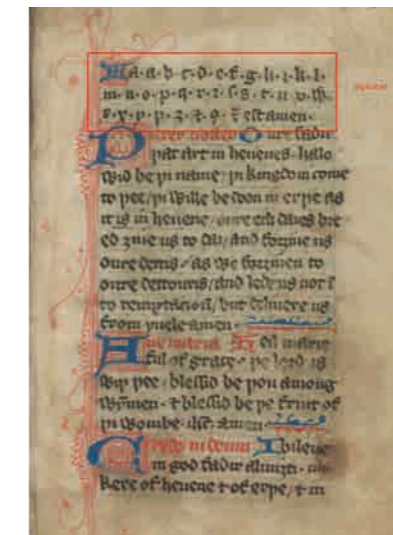 A·a·b·c·d·e·f·g·h·i·k·l·
m·n·o·p·q·r·ꝛ·ſ·s·t·u·v·w·
x·y·þ·p·ȝ·⁊·est amen·
Pater noster Oure fadir
þat art in heuenes· halo
wid be þi name/ þi kingdom come
to þee/ þi wille be don in erþe as
it is in heuene/ oure ech daies bre
ed ȝiue us to dai/ and forȝiue us
oure dettis/ as we forȝiuen to
oure dettouris/ and lede us not ī
to temptacioū/ but delyuere us
from yuele amen·
Aue maria Heil marie
ful of grace· þe lord is
wiþ þee/ blessid be þou among
wymmen· ⁊ blessid be þe fruit of
þi wombe· amen·
Credo in deum I bileue
in god fadir almyȝti· ma
kere of heuene ⁊ of erþe/ ⁊ in